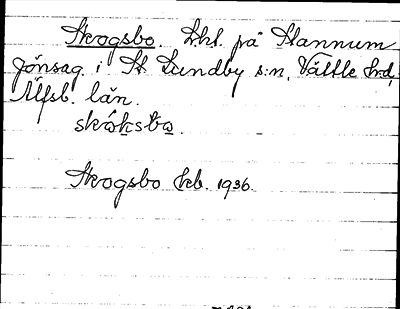 Skogsbo. Lht. på Stannum
Jönsag. i St Lundby s:n, Vättle hrd,
Älfsb. län.
skóksbo.
Skogsbo kb. 1936.